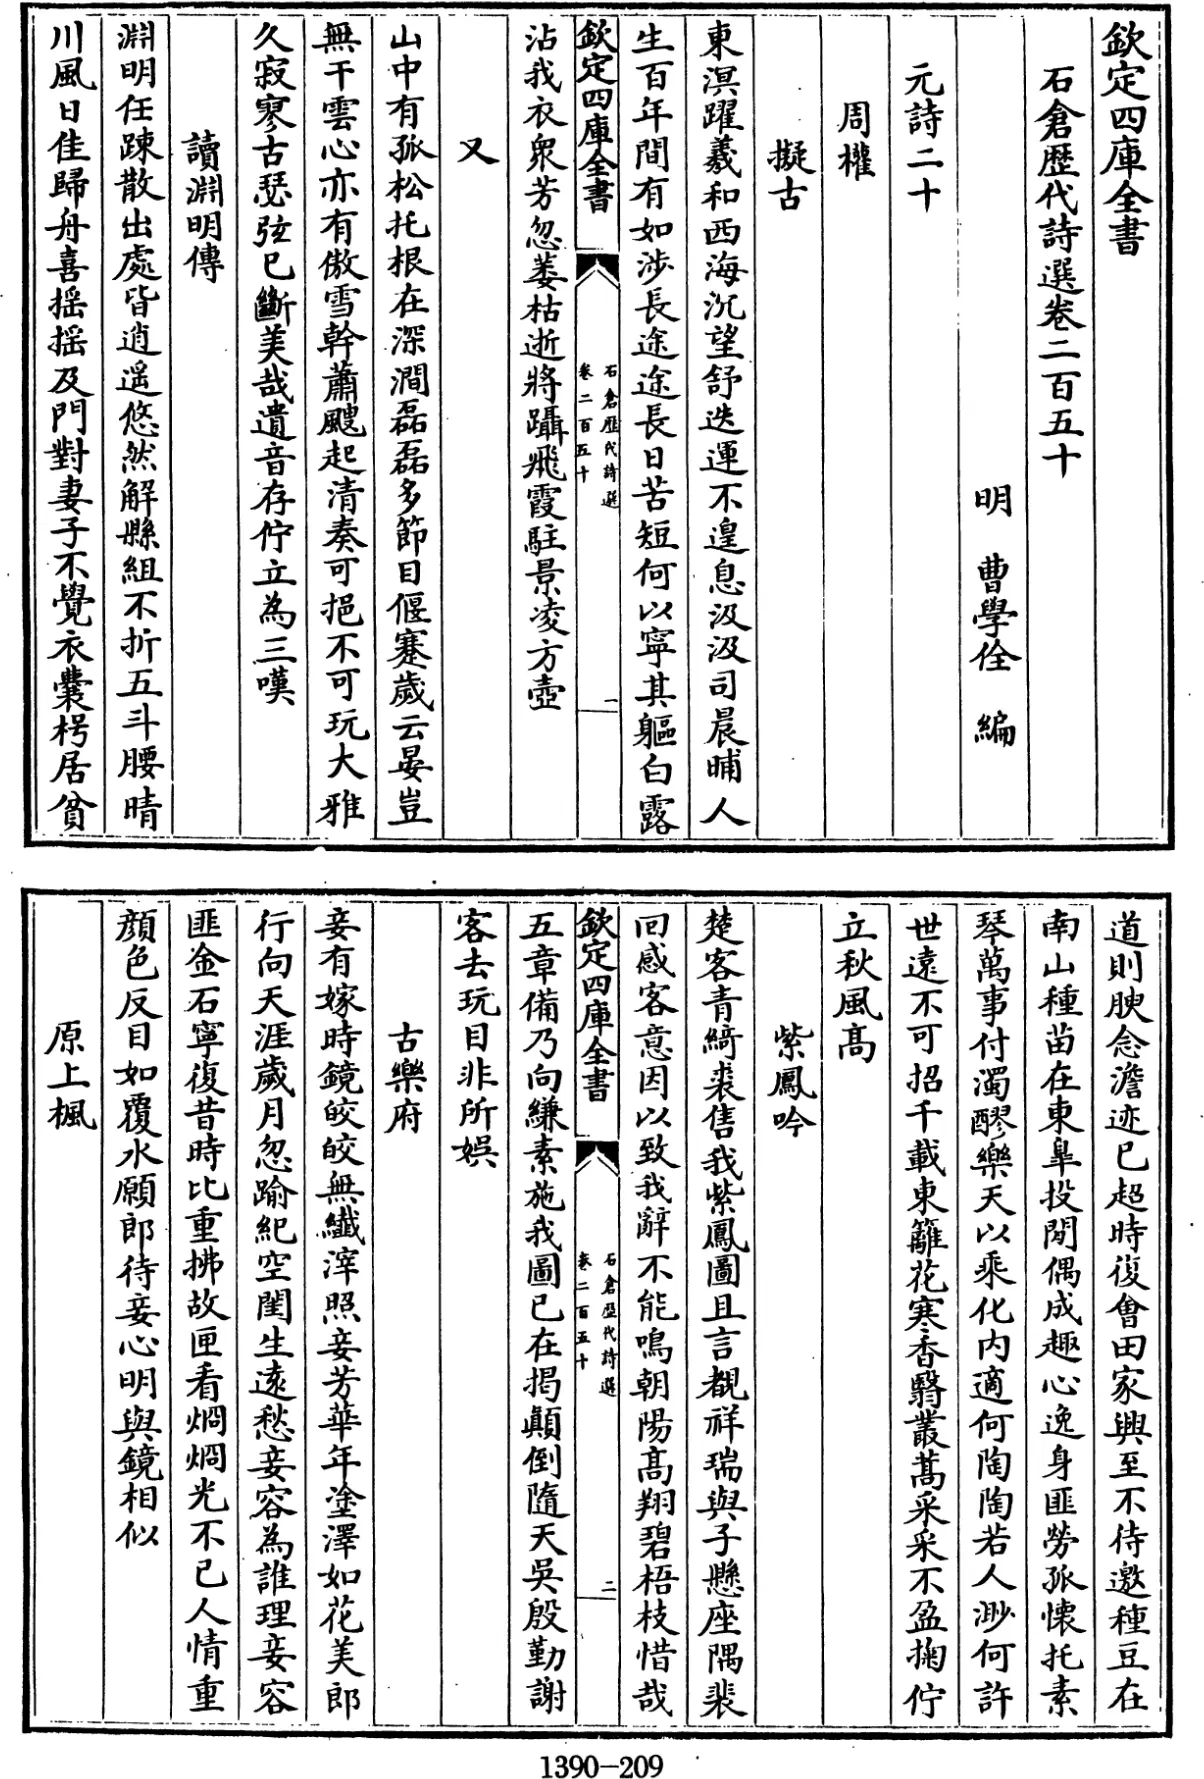 欽定四庫全書
石倉歷代詩選卷二百五十
明 曹學佺 編
元詩二十
周權
擬古
東溟躍羲和西海沉望舒迭運不遑息汲汲司晨晡人
生百年間有如涉長途途長日苦短何以寧其軀白露
欽定四庫全書
石倉歷代詩選
卷二百五十
一
沾我衣衆芳忽萎枯逝將躡飛霞駐景凌方壺
又
山中有孤松托根在深澗磊磊多節目偃蹇歲云晏豈
無干雲心亦有傲雪幹蕭颼起清奏可挹不可玩大雅
久寂寥古瑟弦已斷美哉遺音存佇立為三嘆
讀淵明傳
淵明任踈散出處皆逍遥悠然解縣組不折五斗腰晴
川風日佳歸舟喜摇摇及門對妻子不覺衣囊枵居貧
道則腴念澹迹已超時復會田家興至不待邀種豆在
南山種苗在東臯投閒偶成趣心逸身匪勞孤懷托素
琴萬事付濁醪樂天以乘化内適何陶陶若人渺何許
世遠不可招千載東籬花寒香翳叢蒿采采不盈掬佇
立秋風髙
紫鳳吟
楚客青綺裘售我紫鳳圖且言覩祥瑞與子懸座隅裴
回感客意因以致我辭不能鳴朝陽髙翔碧梧枝惜哉
欽定四庫全書
石倉歷代詩選
卷二百五十
二
五章備乃向縑素施我圖已在揭顛倒隨天吳殷勤謝
客去玩目非所娛
古樂府
妾有嫁時鏡皎皎無纖滓照妾芳華年塗澤如花美郎
行向天涯歲月忽踰紀空閨生遠愁妾容為誰理妾容
匪金石寧復昔時比重拂故匣看烱烱光不已人情重
顔色反目如覆水願郎待妾心明與鏡相似
原上楓
1390-209